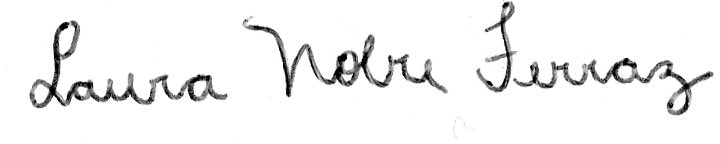 Laura Nobre Ferraz